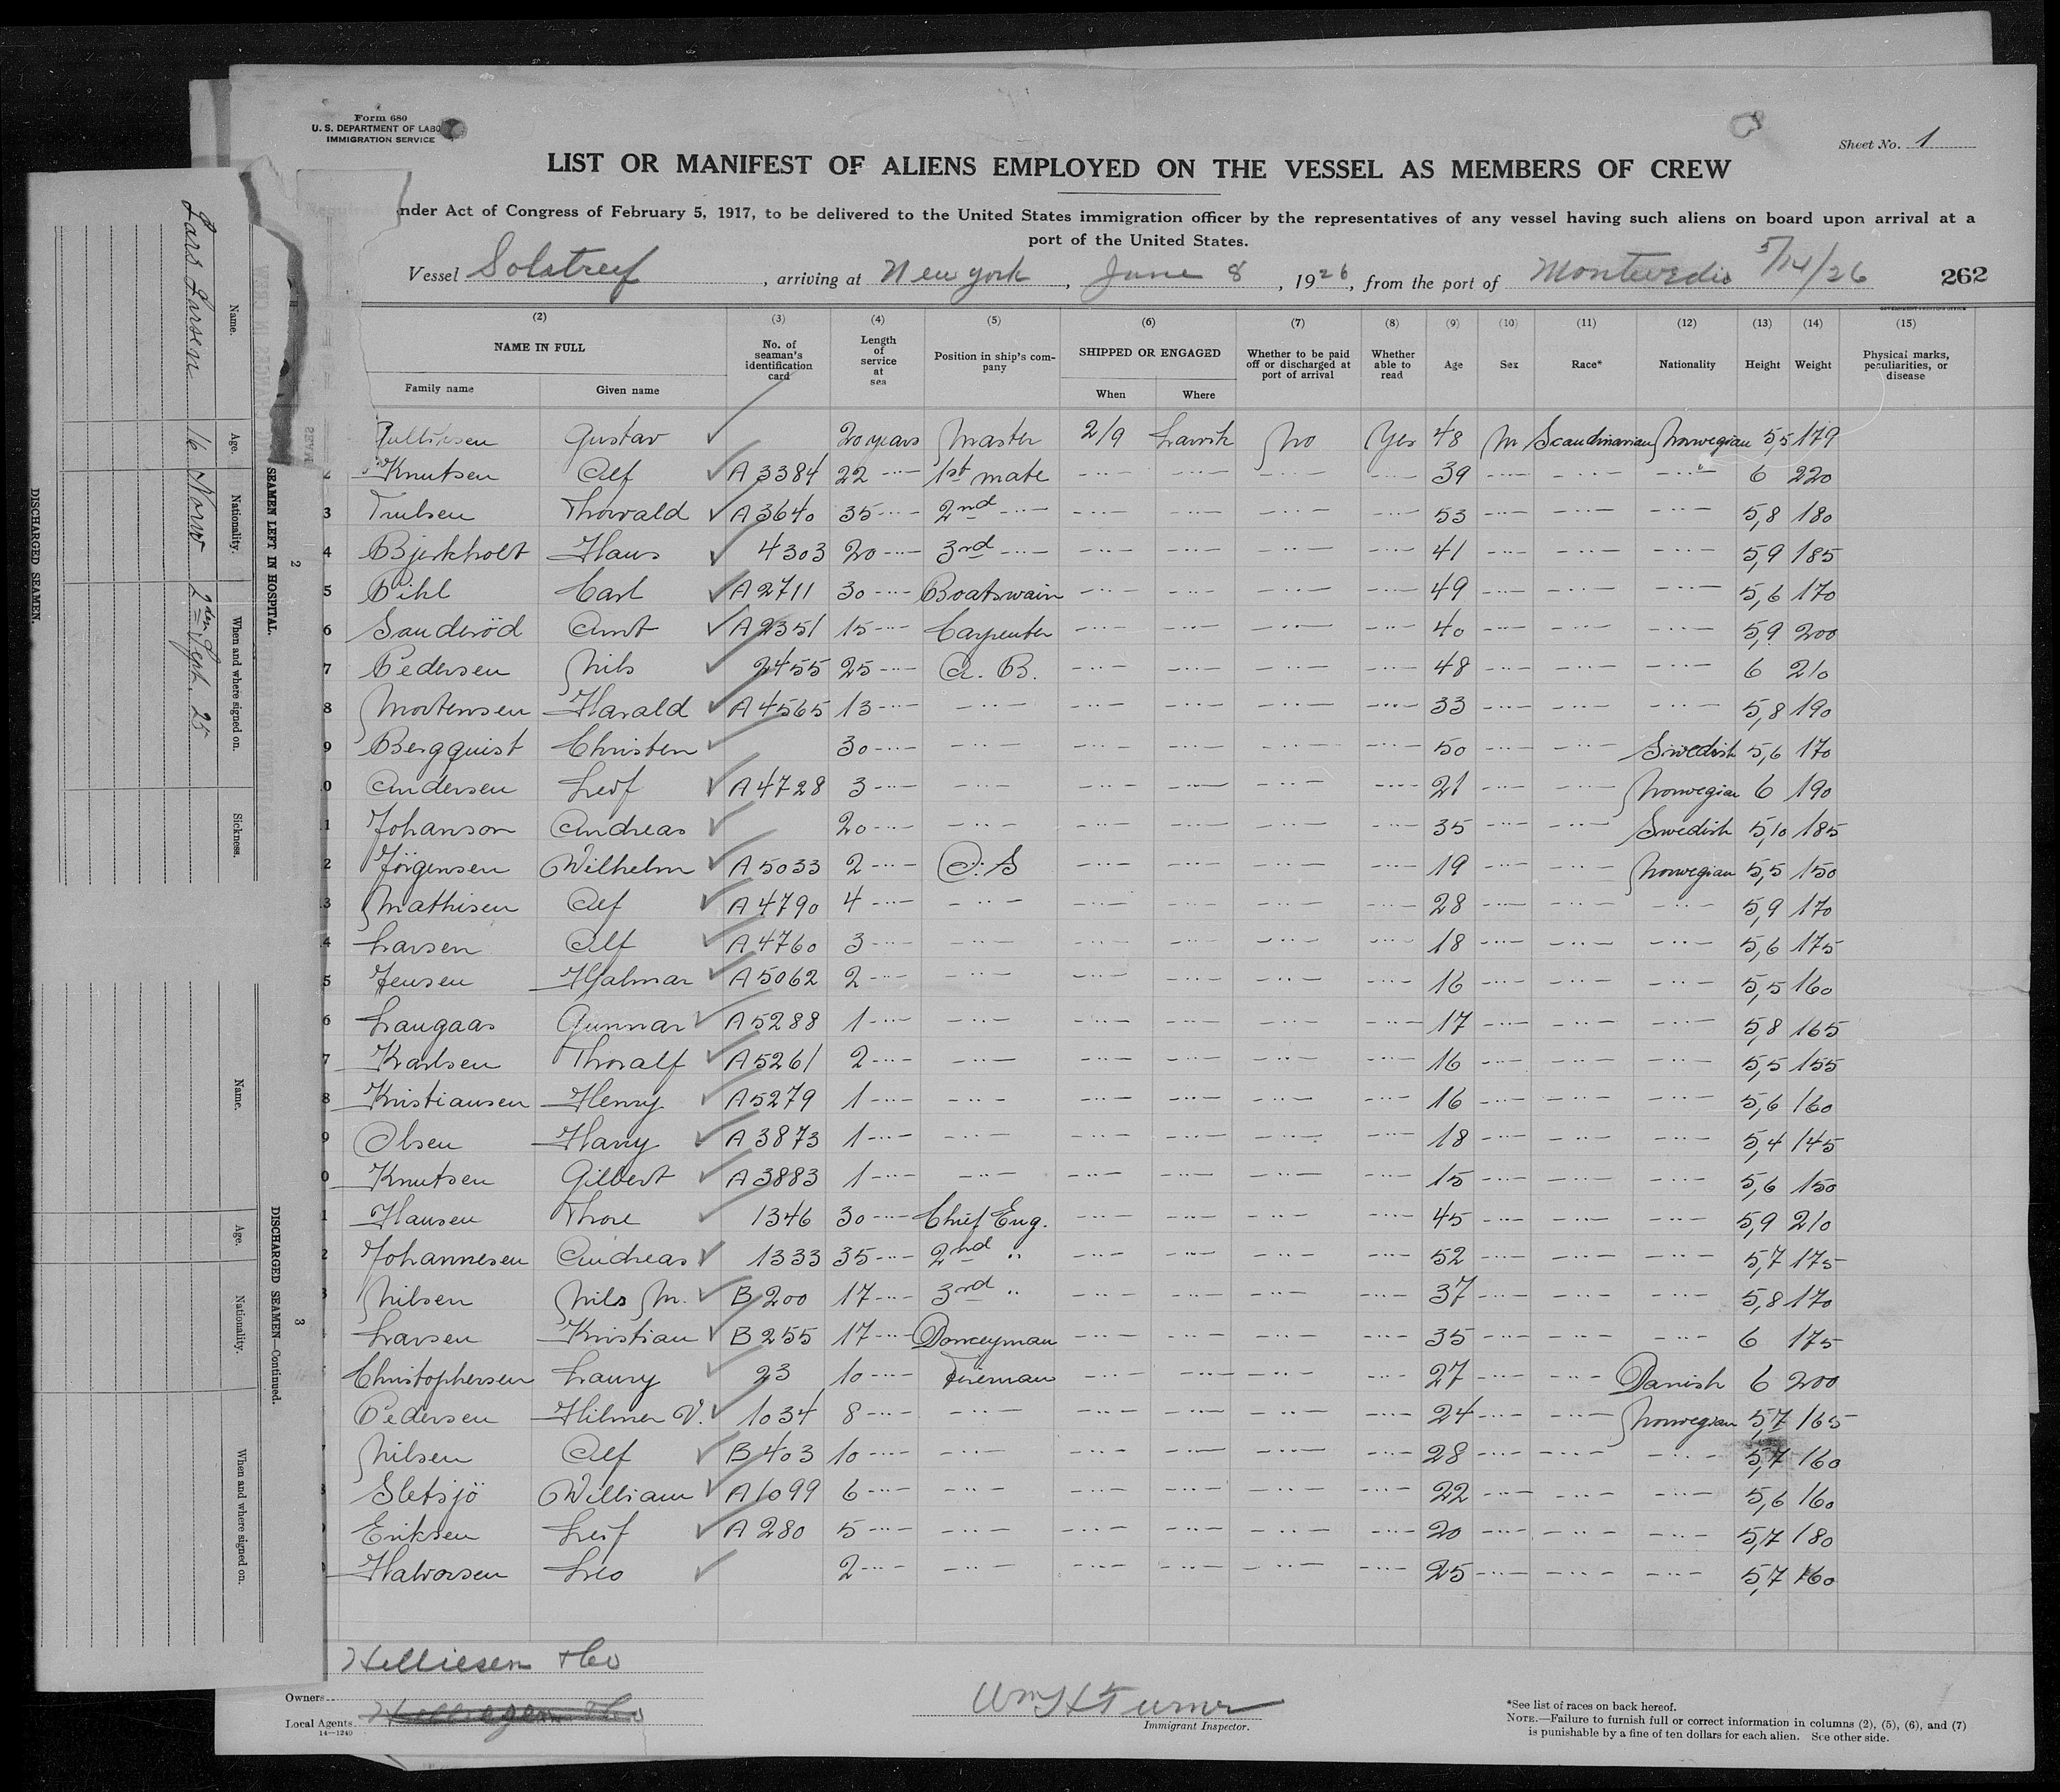 Form 680
U. S. DEPARTMENT OF LABO
IMMIGRATION SERVICE
Sheet No. 1
LIST OR MANIFEST OF ALIENS EMPLOYED ON THE VESSEL AS MEMBERS OF CREW
nder Act of Congress of February 5, 1917, to be delivered to the United States immigration officer by the representatives of any vessel having such aliens on board upon arrival at a
port of the United States.
Vessel Solstreif, arriving at New york, June 8, 1926, from the port of Montevedio 5/14/26 262
(2) (3) (4) (5) (6) (7) (8) (9) (10) (11) (12) (13) (14) (15)
NAME IN FULL No. of seaman's identification card Length of service at sea Position in ship's company SHIPPED OR ENGAGED Whether to be paid off or discharged at port of arrival Whether able to read Age Sex Race* Nationality Height Weight Physical marks, peculiarities, or disease
Family name Given name When Where
Gustav 20 years Master 2/9 Larvik No Yes 48 M Scandinavian Norwegian 5,5 179
Knutsen Alf A 3384 22 -··- 1st mate -··- -··- -··- -··- 39 -··- -··- -··- 6 220
3 Trulsen Thorvald A 3640 35 -··- 2nd -··- -··- -··- -··- -··- 53 -··- -··- -··- 5,8 180
4 Bjerkholt Hans 4303 20 -··- 3rd -··- -··- -··- -··- -··- 41 -··- -··- -··- 5,9 185
5 Pihl Carl A 2711 30 -··- Boatswain -··- -··- -··- -··- 49 -··- -··- -··- 5,6 170
6 Sanderöd Arnt A 2351 15 -··- Carpenter -··- -··- -··- -··- 40 -··- -··- -··- 5,9 200
7 Pedersen Nils 2455 25 -··- A. B. -··- -··- -··- -··- 48 -··- -··- -··- 6 210
8 Mortensen Harald A 4565 13 -··- -··- -··- -··- -··- -··- 33 -··- -··- -··- 5,8 190
9 Bergquist Christen 30 -··- -··- -··- -··- -··- -··- 50 -··- -··- Swedish 5,6 170
0 Andersen Leif A 4728 3 -··- -··- -··- -··- -··- -··- 21 -··- -··- Norwegian 6 190
1 Johanson Andreas 20 -··- -··- -··- -··- -··- -··- 35 -··- -··- Swedish 5,10 185
2 Jörgensen Wilhelm A 5033 2 -··- O. S -··- -··- -··- -··- 19 -··- -··- Norwegian 5,5 150
3 Mathisen Alf A 4790 4 -··- -··- -··- -··- -··- -··- 28 -··- -··- -··- 5,9 170
4 Larsen Alf A 4760 3 -··- -··- -··- -··- -··- -··- 18 -··- -··- -··- 5,6 175
5 Jensen Hjalmar A 5062 2 -··- -··- -··- -··- -··- -··- 16 -··- -··- -··- 5,5 160
6 Langaas Gunnar A 5288 1 -··- -··- -··- -··- -··- -··- 17 -··- -··- -··- 5,8 165
7 Karlsen Thoralf A 5261 2 -··- -··- -··- -··- -··- -··- 16 -··- -··- -··- 5,5 155
8 Kristiansen Henry A 5279 1 -··- -··- -··- -··- -··- -··- 16 -··- -··- -··- 5,6 160
9 Olsen Harry A 3873 1 -··- -··- -··- -··- -··- -··- 18 -··- -··- -··- 5,4 145
0 Knutsen Gilbert A 3883 1 -··- -··- -··- -··- -··- -··- 15 -··- -··- -··- 5,6 150
1 Hansen Thore 1346 30 -··- Chief Eng. -··- -··- -··- -··- 45 -··- -··- -··- 5,9 210
2 Johannesen Andreas 1333 35 -··- 2nd ·· -··- -··- -··- -··- 52 -··- -··- -··- 5,7 175
3 Nilsen Nils M. B 200 17 -··- 3rd ·· -··- -··- -··- -··- 37 -··- -··- -··- 5,8 170
Larsen Kristian B 255 17 -··- Donceyman -··- -··- -··- -··- 35 -··- -··- -··- 6 175
Christophersen Laury 23 10 -··- Fireman -··- -··- -··- -··- 27 -··- -··- Danish 6 200
Pedersen Hilmer V. 1034 8 -··- -··- -··- -··- -··- -··- 24 -··- -··- Norwegian 5,7 165
Nilsen Alf B 403 10 -··- -··- -··- -··- -··- -··- 28 -··- -··- -··- 5,7 160
Sletsjö William A 1099 6 -··- -··- -··- -··- -··- -··- 22 -··- -··- -··- 5,6 160
Eriksen Leif A 280 5 -··- -··- -··- -··- -··- -··- 20 -··- -··- -··- 5,7 180
Halvorsen Leo 2 -··- -··- -··- -··- -··- -··- 25 -··- -··- -··- 5,7 160
Helliesen & Co
Owners
Local Agents
14—1240
Wm H Turner
Immigrant Inspector.
*See list of races on back hereof.
NOTE.—Failure to furnish full or correct information in columns (2), (5), (6), and (7)
is punishable by a fine of ten dollars for each alien. See other side.
2
SEAMEN LEFT IN HOSPITAL.
Name. Age. Nationality. When and where signed on. Sickness.
Lars Larsen 16 Norw 2den Sept. 25
DISCHARGED SEAMEN.
3
DISCHARGED SEAMEN—Continued.
Name. Age. Nationality. When and where signed on.